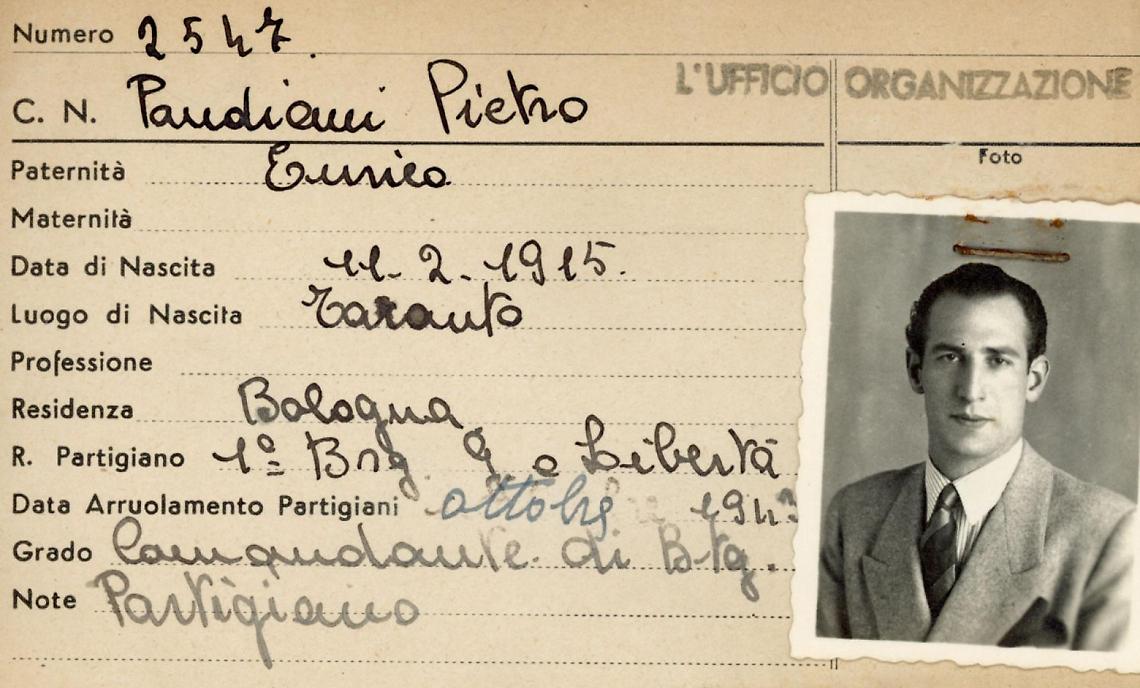 Numero 2547.
L'UFFICIO ORGANIZZAZIONE
C. N. Pandiani Pietro
Foto
Paternità Enrico
Maternità
Data di Nascita 11-2-1915.
Luogo di Nascita Taranto
Professione
Residenza Bologna
R. Partigiano 1º Brg. G e Libertà
Data Arruolamento Partigiani ottobre 1943
Grado Comandante di Btg.
Note Partigiano